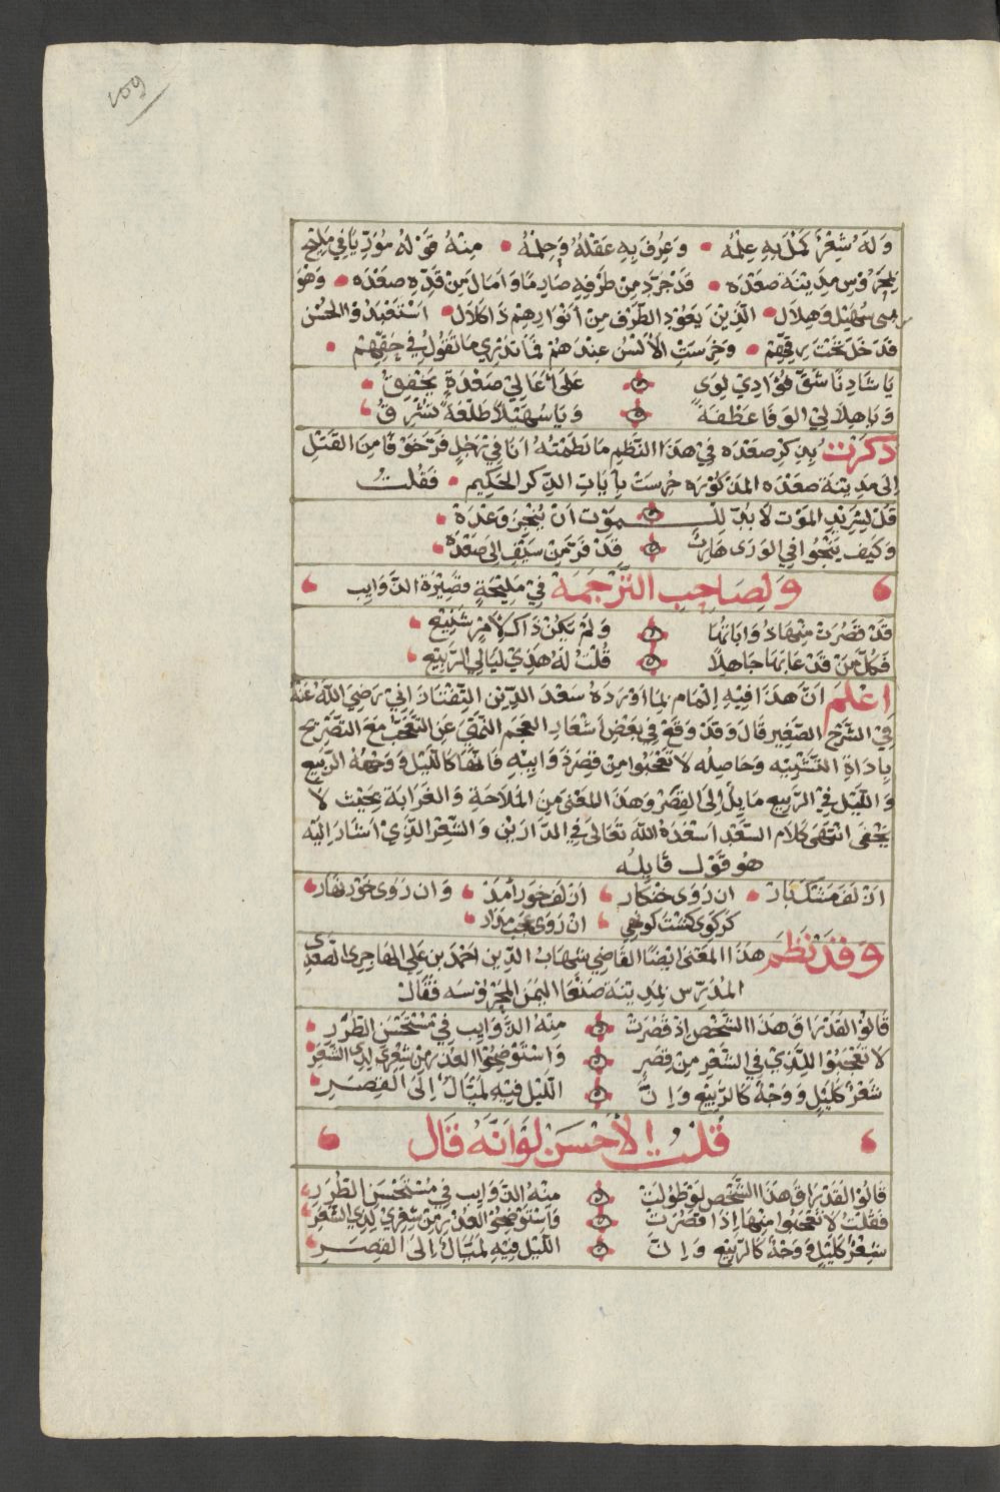 وَلَهُ شِعْرٌ كَمُلَ بِهِ عِلْمُهُ • وَعُرِفَ بِهِ عَقْلُهُ وَحِلْمُهُ • مِنْهُ قَوْلُهُ مُوَرِّيًا في مَلِيحٍ
بمَحْرُوسِ مدِينَة صَعْدَه • قَدْ جَرَّدَ مِن طَرْفِهِ صَارِمًا وَأمَالَ مِنْ قَدِّهِ صعْدَه • وَهْوَ
سُهَيْل وَهِلاَل • الَّذِينَ يَعُوْدُ الطَّرْفُ مِن أنْوَارِهِمْ ذَا كَلاَل • اسْتَعْبَدُوا الحُسْن
فَدَخَلَ تَحْتَ رِقِّهِمْ • وَخَرِسَتِ الأَلْسُنُ عِنْدَهُمْ فَمَا تَدْرِي مَا تَقُولُ فِي حَقِّهِمْ •
يَا شَادِنًا شَقَّ فُؤَادِيْ لِوَى عَلَى أَعَالِيْ صَعْدَةٍ يَخْفِقُ •
وَيَا هِلاَلِيْ الوَفَا عَطْفَةً وَيَا سُهَيْلاً طَلْعَةً تُشْرِقُ
ذكَرْتُ بِذِكْرِ صعْدَه فِيْ هذَا النَّظْمِ مَا نَظَمْتُهُ انَا فِيْ رَجُلٍ فَرَّ خَوْفًا مِنَ القَتْلِ
إلى مَدِينَة صعْدَه المَذكُوْرَه حُرِسَتْ بِآيَاتِ الذِّكرِ الحَكِيْمِ • فَقُلتُ
قُلْ لِشَرِيْدِ المَوْت لاَ بُدَّ لِلْمَوْتِ انْ يُنْجِزَ وَعْدَهْ •
وَكَيْفَ يَنْجُوا في الوَرَى هَارِبٌ قَدْ فَرَّ مِنْ سَيْفٍ إلَى صَعْدَهْ •
وَلِصَاحِبِ التَّرْجَمَةِ فِيْ مَلِيْحَةٍ قَصِيْرَةِ الذَّوَايِب
قَدْ قَصُرَتْ مِنْهَا ذُوَابَاتُهَا وَلَمْ يَكُنْ ذَاكَ لأَمْرٍ شَنِيْعْ •
فَكُلُّ مَنْ قَدْ عَابَهَا جَاهِلاً قُلْتُ لَهُ هَذِيْ لَيَالِي الرَّبِيْعْ
اعْلَمْ انَّ هذَا فِيْهِ إلْمَام بِمَا أوْرَدَهُ سَعْدُ الدِّيْنِ التِّفْتَازَانِيْ رَضِيَ اللهُ عَنْهُ
فِيْ الشَّرْحِ الصَّغِير قَالَ وَقَدْ وَقَعَ فِيْ بَعْضِ أشْعَارِ العَجَم النَّهْيُ عَنِ التَّعَجُّبِ مَعَ التَّصْرِيْحِ
بِادَاةِ التَّشْبِيْهِ وَحَاصِلُه لاَ تَعْجَبُوا مِنْ قِصَرِ ذَوَايِبِهِ فَانَّهَا كَاللَّيْلِ وَوَجْهُهُ الرَّبِيْعُ
وَاللَّيْل فِيْ الرَّبِيْعِ مَايِلٌ إلَى القِصَرْ وَهَذَ المَعْنَى مِنَ المَلاَحَةِ وَالغَرَابَةِ بِحَيْثُ لاَ
يَخْفَى انْتَهَى كَلاَمُ السَّعْدِ اسْعَدَهُ اللهُ تَعَالَى فِيْ الدَّارَيْن وَالشِّعْرُ الَّذِيْ اشَارَ إلَيْهِ
هُوَ قَوْلُ قَايِلِهِ
وَقَدْ نَظَمَ هَذَا المَعْنَى ايْضًا القَاضِي شِهَابُ الدِّين احْمَدُ بن عَلي المَهَاجِرِي الصَّعْدِي
المُدَرِّسُ بمَدِيْنَة صَنْعَا اليَمَن المَحْرُوْسَه فَقَالْ
قَالُوْا لقَدْ رَاقَ هَذَا الشَّخْصُ اذْ قَصُرَتْ مِنْهُ الذَّوَايِب فِيْ مُسْتَحْسَنِ الطُّرَرِ •
لاَ تَعْجَبُوْا لِلَّذِيْ فِيْ الشَّعْرِ مِنْ قِصَرٍ وَاسْتَوْضِحُوْا العُذْرَ مِنْ شِعْرِي لِذِي الشَّعَرِ
شَعْرٌ كَلَيْلٍ وَوَجْهٌ كَالرَّبِيْعِ وَإنَّ اللَّيْلَ فِيْهِ لَمَيَّالٌ إلَى القِصَرِ •
قُلْتُ الأَحْسَنُ لَوْ انَّهُ قَال
قَالُوْا لقَدْ رَاقَ هَذَا الشَّخْصُ لَوْ طُوِّلَتْ مِنْهُ الذَّوَايِب فِيْ مُسْتَحْسَنِ الطُّرَرِ
فَقُلْتُ لاَ تَعْجَبُوا مِنْهَا إذَا قَصُرَتْ وَاسْتَوْضِحُوْا العُذْرَ مِنْ شِعْرِي لِذِي الشَّعَرِ
شَعْرٌ كَلَيْلٍ وَوَجْهٌ كَالرَّبِيْعِ وَإنَّ اللَّيْلَ فِيْهِ لَمَيَّالٌ إلَى القِصَرِ